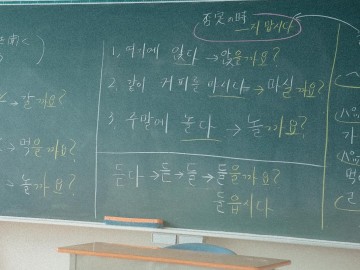 否定の時
—지 맙시다
갈까요?
먹을까요?
놀까요?
1, 여기에 앉다 → 앉을까요?
2. 같이 커피를 마시다 → 마실까요?
3. 주말에 놀다 → 놀까요?
듣다 → 듣 → 들 → 들을까요?
들읍시다